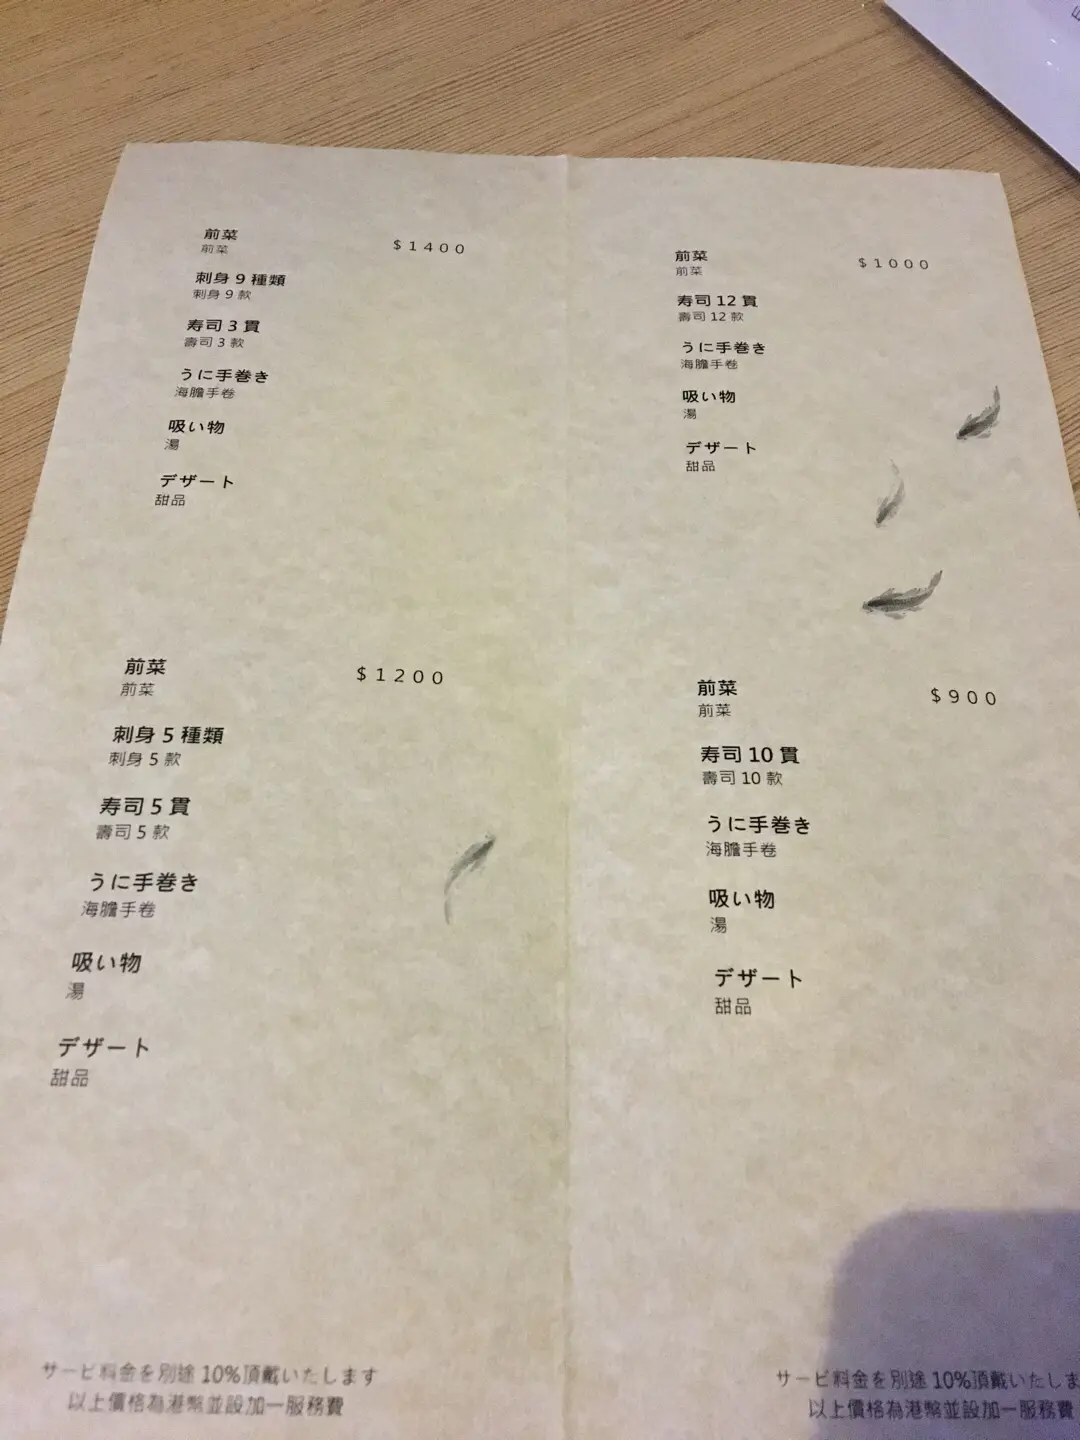 前菜
前菜
$1400
刺身 9 種類
刺身 9 款
寿司 3 貫
壽司 3 款
うに手巻き
海膽手卷
吸い物
湯
デザート
甜品
前菜
前菜
$1200
刺身 5 種類
刺身 5 款
寿司 5 貫
壽司 5 款
うに手巻き
海膽手卷
吸い物
湯
デザート
甜品
サービ料金を別途 10%頂戴いたします
以上價格為港幣並設加一服務費
前菜
前菜
$1000
寿司 12 貫
壽司 12 款
うに手巻き
海膽手卷
吸い物
湯
デザート
甜品
前菜
前菜
$900
寿司 10 貫
壽司 10 款
うに手巻き
海膽手卷
吸い物
湯
デザート
甜品
サービ料金を別途 10%頂戴いたしま
以上價格為港幣並設加一服務費